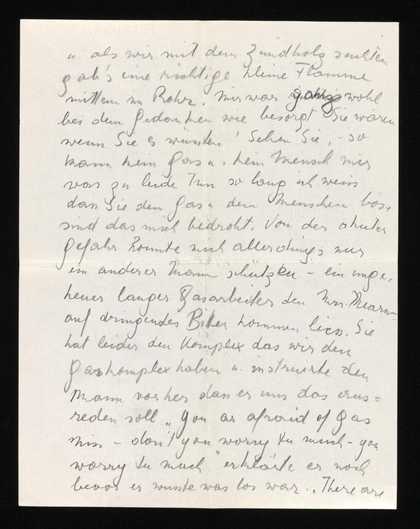 u. als wir mit dem Zündholz suchten
gab's eine richtige kleine Flamme
mitten im Rohr. Mir war ganz wohl
bei dem Gedanken wie besorgt Sie wären
wenn Sie es wüssten! Sehen Sie, - so
kann kein Gas u. kein Mensch mir
was zu leide tun so lang ich weiss
dass Sie dem Gas u. dem Menschen böse
sind das mich bedroht. Von der akuten
Gefahr konnte mich allerdings nur
ein anderer Mann schützen - ein unge-
heuer langer Gasarbeiter den Mrs.
auf dringendes Bitten kommen liess. Sie
hat leider den Komplex dass wir den
Gaskomplex haben u. instruierte den
Mann vorher dass er uns das aus=
reden soll „You are afraid of Gas
Miss - don't you worry tu much - you
worry tu much" erklärte er noch
bevor er wusste was los war. „There are